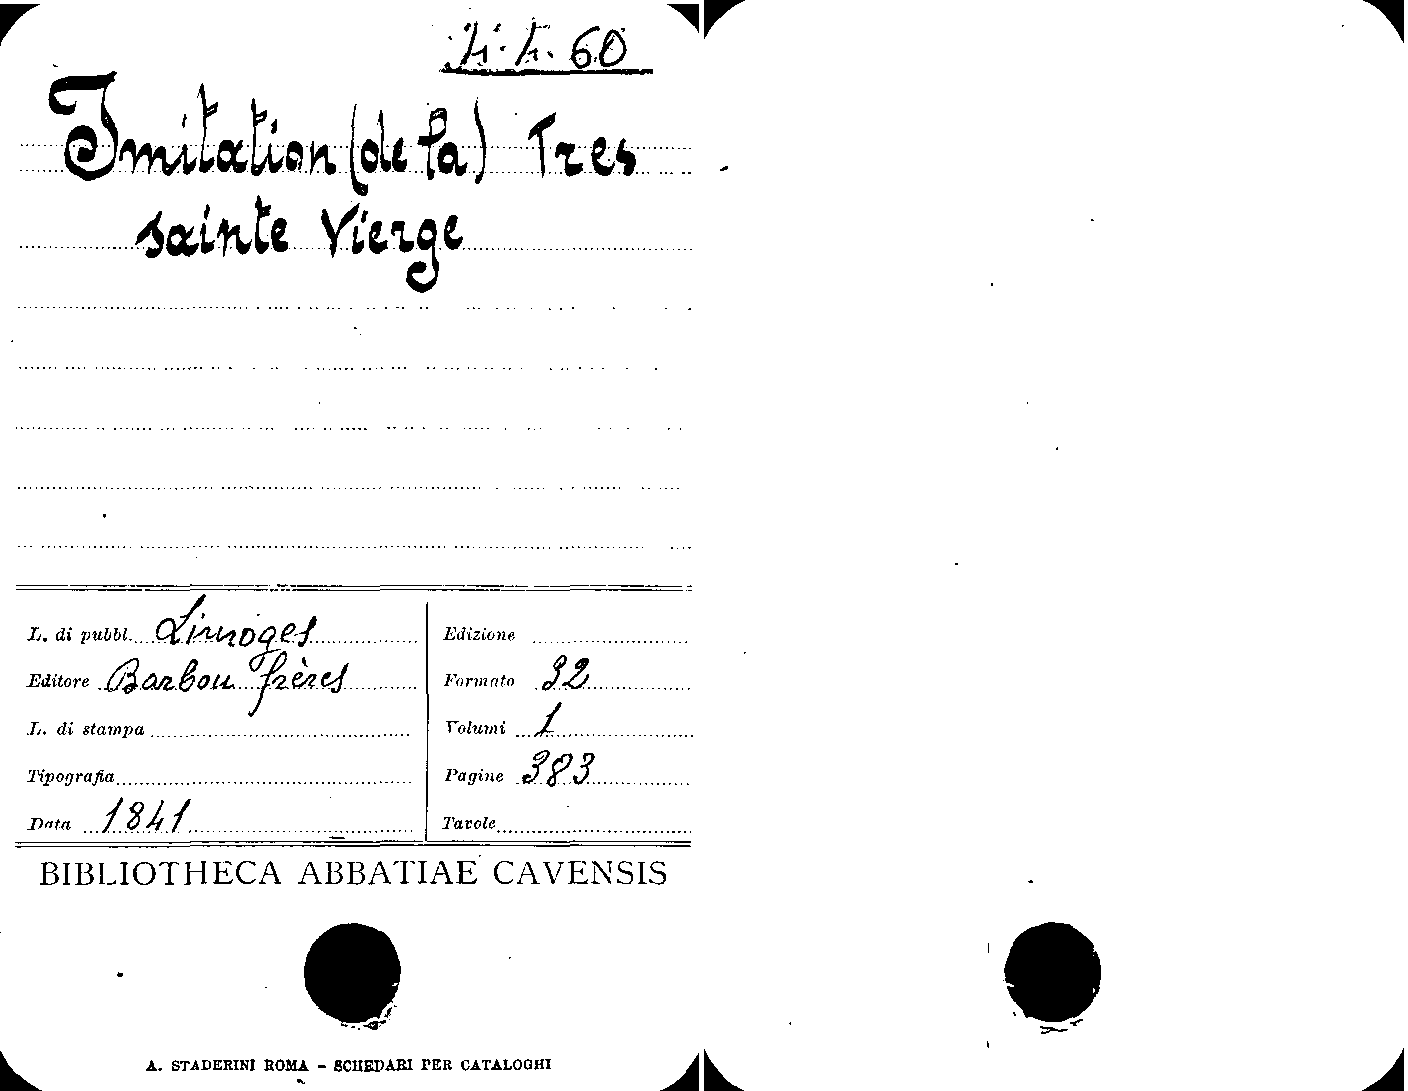 60
Imitation (de la) Tres
sainte Vierge
L. di pubbl. Limoges
Editore Barbou frères
L. di stampa
Tipografia
Data 1841
Edizione
Formato 32
Volumi 1
Pagine 383
Tavole
BIBLIOTHECA ABBATIAE CAVENSIS
A. STADERINI ROMA - SCHEDARI PER CATALOGHI